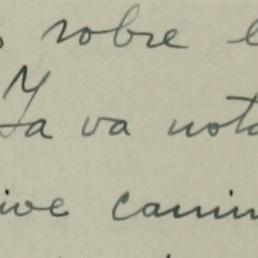 sobre
Y
va nota
ive camin